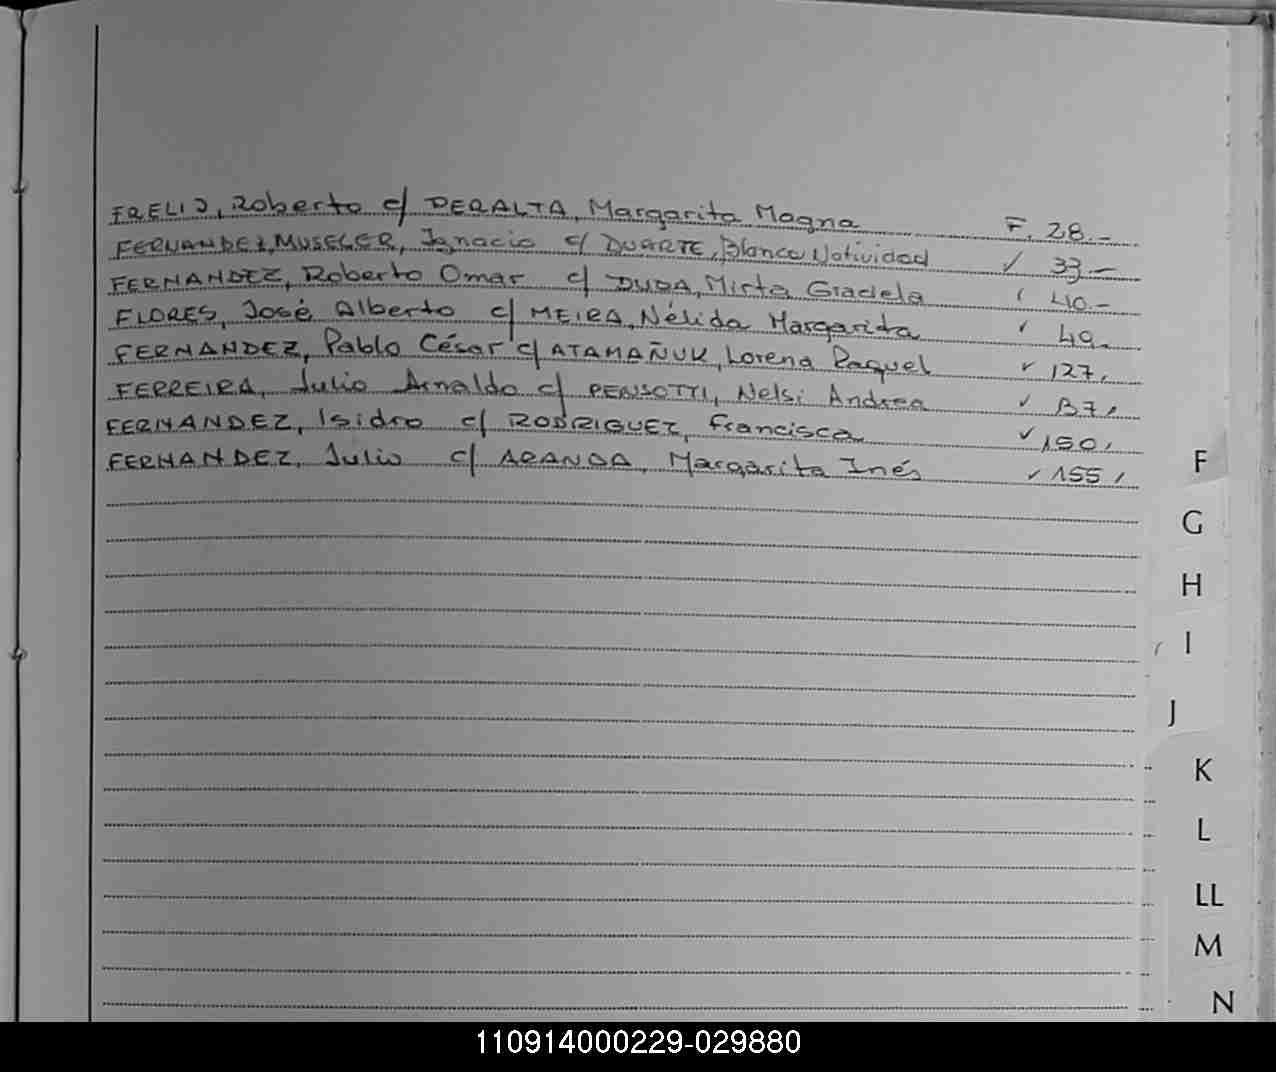 FRELIJ, Roberto c/ PERALTA, Margarita Magna F. 28.-
FERNANDEZ, MUSELER, Ignacio c/ DUARTE, Blanca Natividad ✓ 33-
FERNANDEZ, Roberto Omar c/ DUDA, Mirta Graciela ✓ 40.-
FLORES, José Alberto c/ MEIRA, Nélida Margarita ✓ 49.
FERNANDEZ, Pablo César c/ ATAMAÑUK, Lorena Raquel ✓ 127,
FERREIRA, Julio Arnaldo c/ PENSOTTI, Nelsi Andrea ✓ 137,
FERNANDEZ, Isidro c/ RODRIGUEZ, Francisca ✓ 150,
FERNANDEZ, Julio c/ ARANDA, Margarita Inés ✓ 155,
F
G
H
I
J
K
L
LL
M
N
110914000229-029880